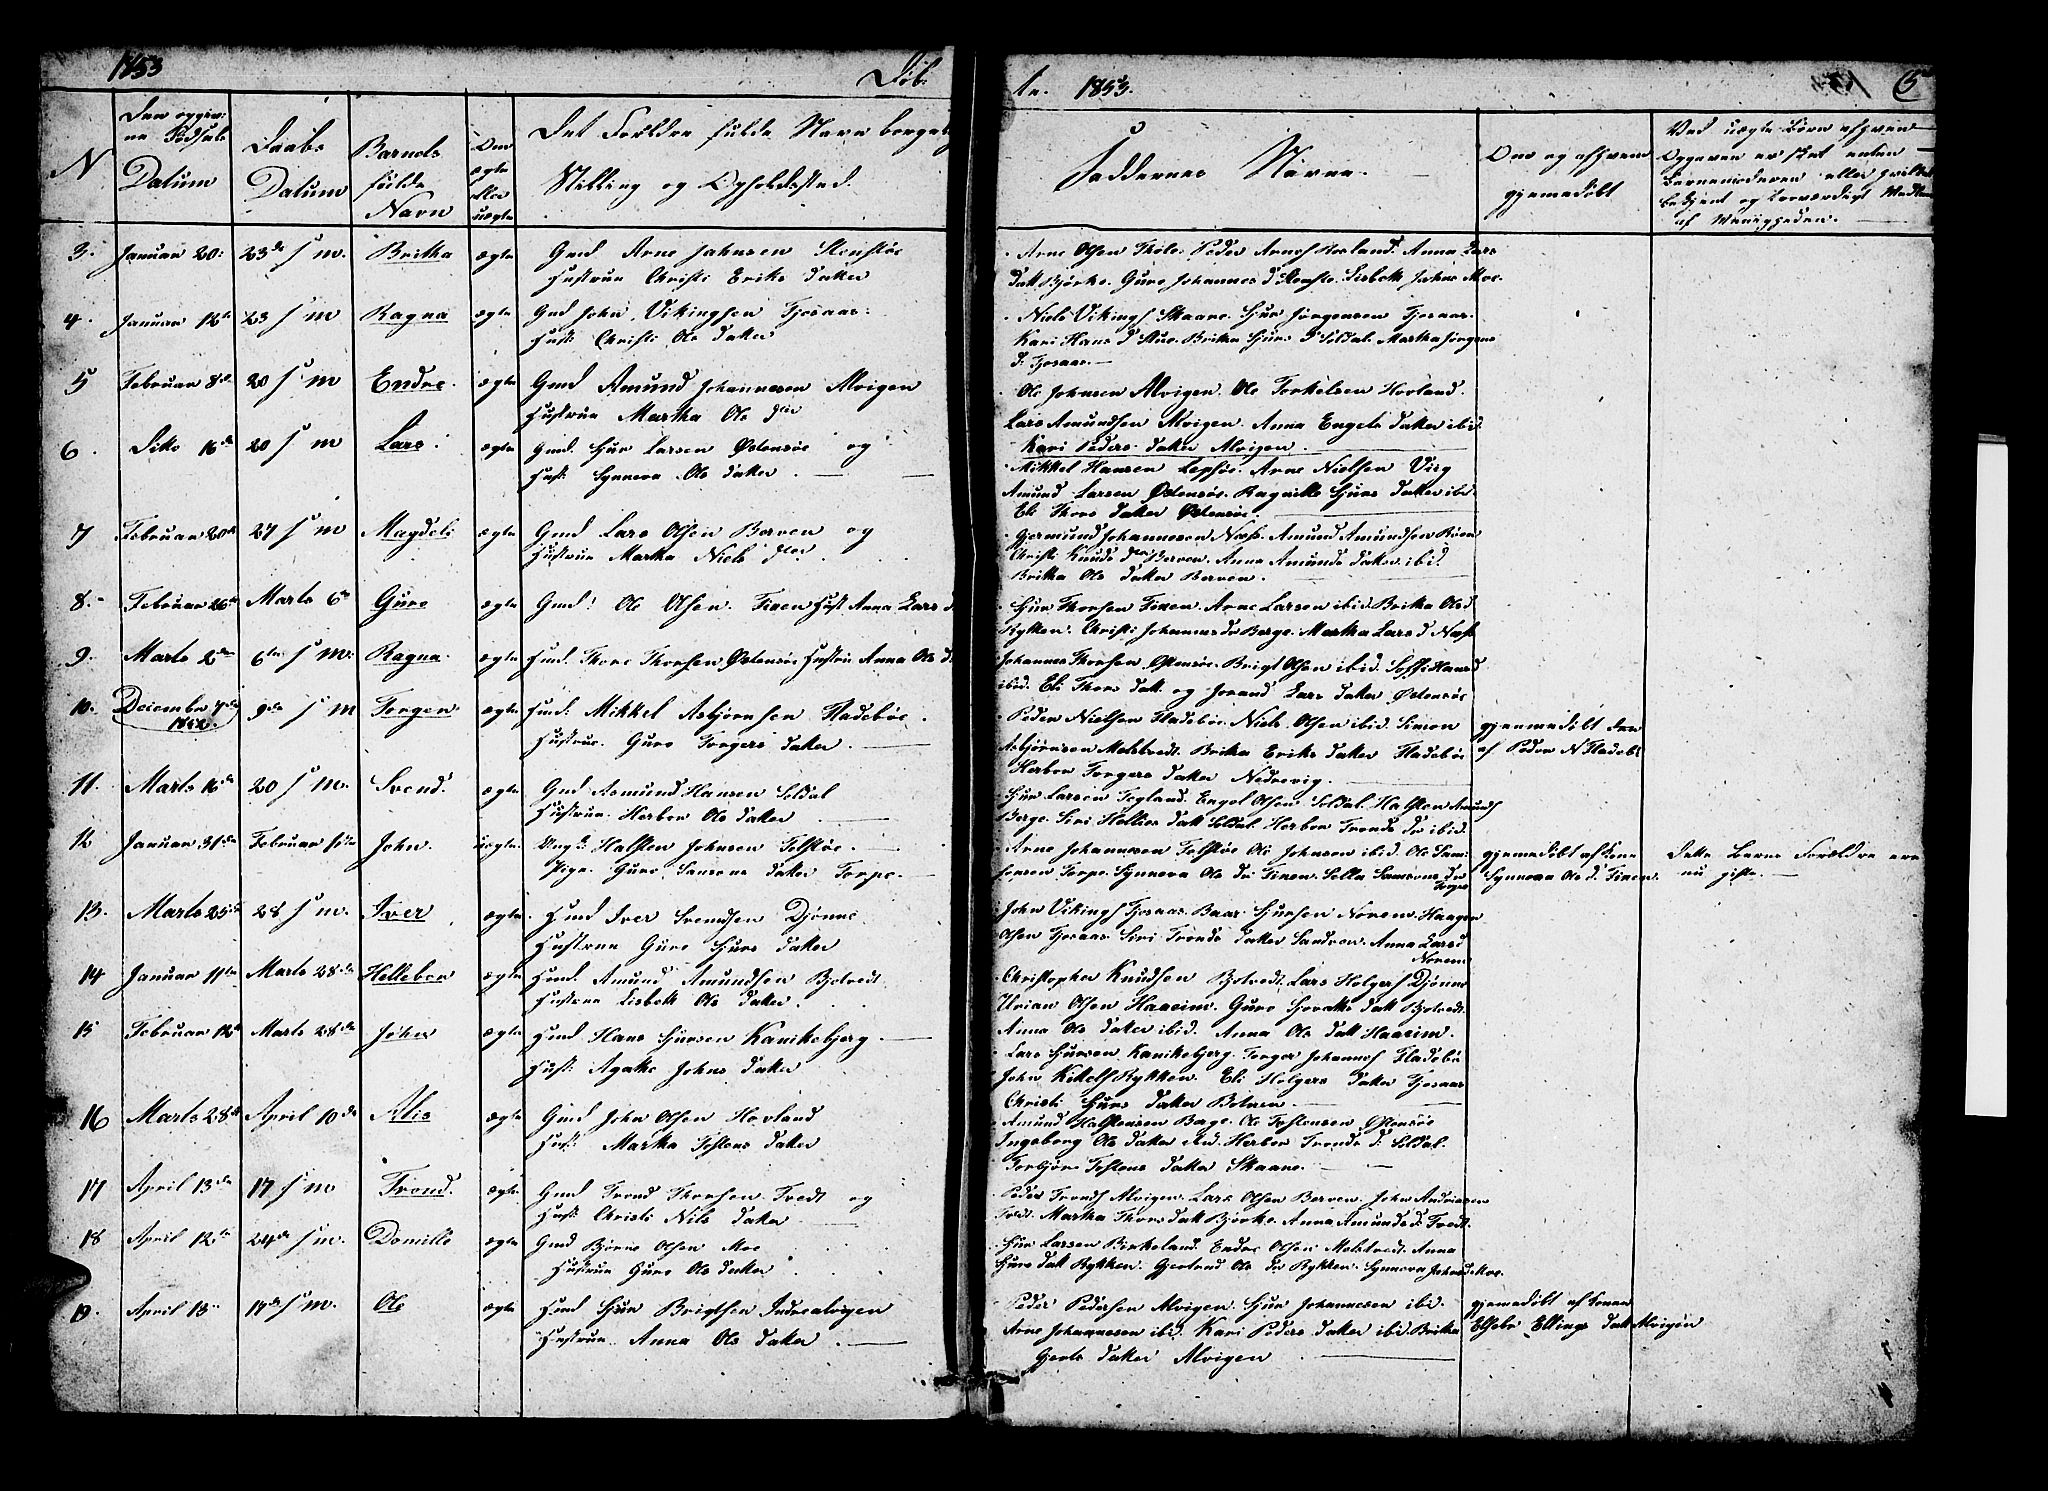 1853
Døb
te. 1853.
5
N
Den opgiv-
ne Fødsels
Datum
Daabs
Datum
Barnets
fulde
Navn
Om
ægte
eller
uægte
Det Forldre fulde Navn borgelig
Stilling og Opholdssted.
Faddernes Navne.
Om og af hvem
hjemmedøbt
Ved uægte Børn af hvem
Opgaven er sket enten
Barnemoderen eller
af Menigheden.
3. Januar 20: 23de s m. Britha ægte Gmd Arne Johnsen Stenstøe
Hustrue Christi Eriks Datter
Arne Olsen Thole. Peder Arnes Rosland. Anna Lars
Datt Bjørke. Guro Johannes d Stenstø. Lisbeth Johns Moe.
4. Januar 12te 23 s m Ragna ægte Gmd John Vikingsen Fjosaas:
Hust: Christi Ols Datter
Niels Vikings Skaare. Sjur Jørgensen Fjosaas.
Kari Hans d Stue. Britha Sjurs D Soldal. Martha Jørgens
d. Fjosaas.
5 Februar 8de 20 s m Endre. ægte Gmd Amund Johannesen Alvigen
Hustrue Martha Ols dter
Ole Johnsen Alvigen. Ole Torkelsen Hovland.
Lars Amundsen Alvigen. Anna Engels Datter ibid.
Kari Peders Datter Alvigen.
6. Dito 16de 20 s m Lars. ægte Gmd. Sjur Larsen Østensøe og
Hust: Synneva Ols Datter.
Mikkel Hansen Lepsøe. Arne Nielsen Virg
Amund Larsen Østensøe. Ragnille Sjurs Datter ibid.
Eli Thors Datter Østensøe.
7 Februar 20de 27 s m Magdeli ægte Gmd Lars Olsen Berven og
Hustrue Martha Niels dter
Gjermund Johannesen Næss. Amund Amundsen
Christi Knuds dter Berven. Anna Amunds Datter ibid.
Britha Ols Datter Berven.
8. Februar 26de Marts 6te Guro ægte Gmd: Ole Olsen. Tinen Hust Anna Lars d.
Sjur Thorsen Tinen. Arne Larsen ibid. Britha Ols d
Rykken. Christi Johannes dr Berge. Martha Lars d Næss
9. Marts 2den 6te s m. Ragna. ægte Hmd. Thore Thorsen Østensøe Hustrue Anna Ols d.
Johannes Thorsen Østensøe. Brigt Olsen ibid. Soffi Hans d
ibid. Eli Thors Datt. og Jorand Lars Datter Østensøe
10. Decembr 7de 1852. 9de s m Torger ægte Hmd: Mikkel Asbjørnsen Fladebøe.
Hustrue. Guro Torgers Datter.
Peder Nielsen Fladebøe. Niels Olsen ibid. Simon
Asbjørnsen Molstvedt. Britha Eriks Datter Fladebøe
Herber Torgers Datter Nedrevig.
hjemmedøbt den
af Peder N Fladebø
11. Marts 16de 20 s m. Svend. ægte Gmd Asmund Hansen Soldal
Hustrue. Herber Ols Datter.
Sjur Larsen Tegland. Engel Olsen Soldal. Halsten Amunds
Berge. Siri Hellies Datt Soldal. Herber Tronds dr ibid.
12 Januar 31te Februar John. uægte. Ungk: Halsten Johnsen Tolstøe.
Pige. Guro Samsons Datter Torpe.
Arne Johannesen Tolstøe. Ole Johnsen ibid. Ole Sam-
sonsen Torpe. Synneva Ols dr Tinen. Sella Samsons dr
Torpe
hjemmedøbt af Kone
Synneva Ols d. Tinen.
Dette Barns Forældre ere
nu gifte.
13. Marts 25de 28 s m. Iver ægte. Hmd Iver Svendsen Djønne
Hustrue Guro Sjurs Datter
John Vikings Fjosaas. Baar Sjursen Norem. Haagen
Olsen Fjosaas Siri Tronds Datter Sandven. Anna Lars d
Norem
14 Januar 11te Marts 28de Hellebor ægte Hmd. Amund Amundsen Bjotvedt
Hustrue Lisbeth Ols Datter.
Christopher Knudsen Bjotvedt. Lars Holgers Djønne
Urian Olsen Haaeim. Guro Datt Bjotvedt
Anna Ols Datter ibid. Anna Ols Datt Haaeim.
15 Februar 12te Marts 28de John ægte Hmd Hans Sjursen Kanikebjerg
Hust: Agathe Johns Datter
Lars Sjursen Kanikebjerg. Torger Johannes Fladebø
John Kittels Rykken. Eli Holgers Datter Fjosaas
Christi Sjurs Datter Botnen
16 Marts 28de April 10de Alis ægte Gmd John Olsen Hovland
Hust: Martha Tostens Datter
Amund Halstensen Berge. Ole Tostensen Østensøe
Ingeborg Ols Datter Herber Tronds d. Soldal.
Torbjør Tostens Datter Skaare.
17 April 13de 17 s m Trond. ægte Gmd Trond Thorsen Tvedt og
Hust: Christi Nils Datter
Peder Tronds Alvigen. Lars Olsen Berven. John Andersen
Tvedt. Martha Thors Datt Bjørke. Anna Amunds d. Tvedt.
18 April 12te 24de s m. Domille ægte Gmd Bjørne Olsen Moe
Hustrue Guro Ols Datter
Sjur Larsen Birkeland. Endre Olsen Molstvedt. Anna
Sjurs Datt Rykken. Gjertrud Ols dr Rykken. Synneva Johns d Moe.
19. April 13 17de s m. Ole ægte Hmd Sjur Brigtsen Indrealvigen
Hustrue Anna Ols Datter.
Peder Pedersen Alvigen. Sjur Johannesen ibid.
Arne Johannesen ibid. Kari Peders Datter ibid. Britha
Gjerts Datter Alvigen
hjemmedøbt af Konen
Elsebe Ellings Datt Alvigen